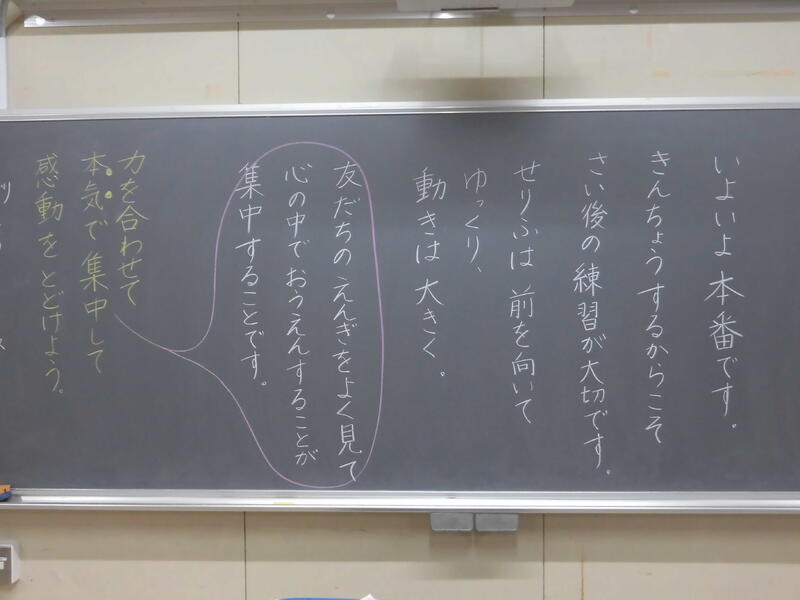 いよいよ本番です。
きんちょうするからこそ
さい後の練習が大切です。
せりふは前を向いて
ゆっくり、
動きは大きく。
友だちのえんぎをよく見て
心の中でおうえんすることが
集中することです。
力を合わせて
本気で集中して
感動をとどけよう。